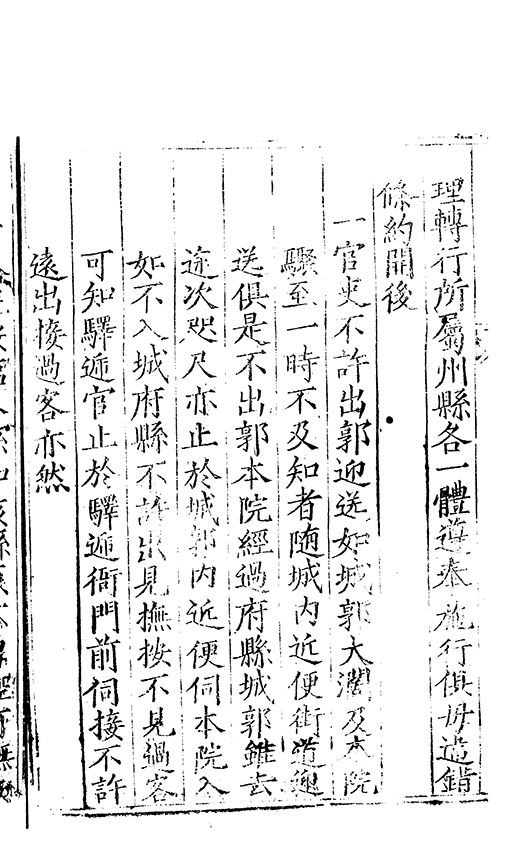 理轉行所屬州縣各一體遵奉施行俱毋違錯
條約開後
一官吏不許出郭迎送如城郭大濶及本院
驟至一時不及知者随城内近便街道迎
送俱是不出郭本院經過府縣城郭雖去
途次咫尺亦止於城郭内近便伺本院入
如不入城府縣不許出見撫按不見過客
可知驛逓官止於驛逓衙門前伺接不許
遠出接過客亦然